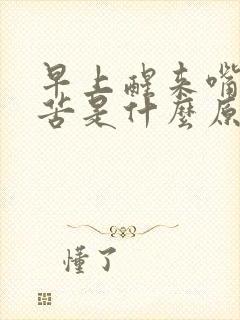 早上醒来嘴
苦是什麼原
懂了